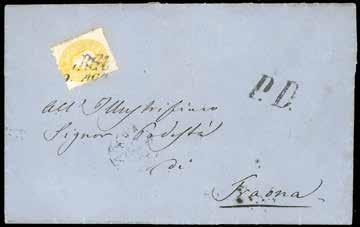 P.D.
All' Illustrissimo
Signor Podestà
di
Fraona